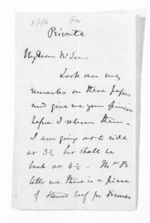 Private
My dear McLean
Look over my
remarks on these papers
and give me your opinion
before I return them —
I am going out to ride
at 3½ but shall be
back at 6½ —
tells me there is a piece
of Hand beef for dinner